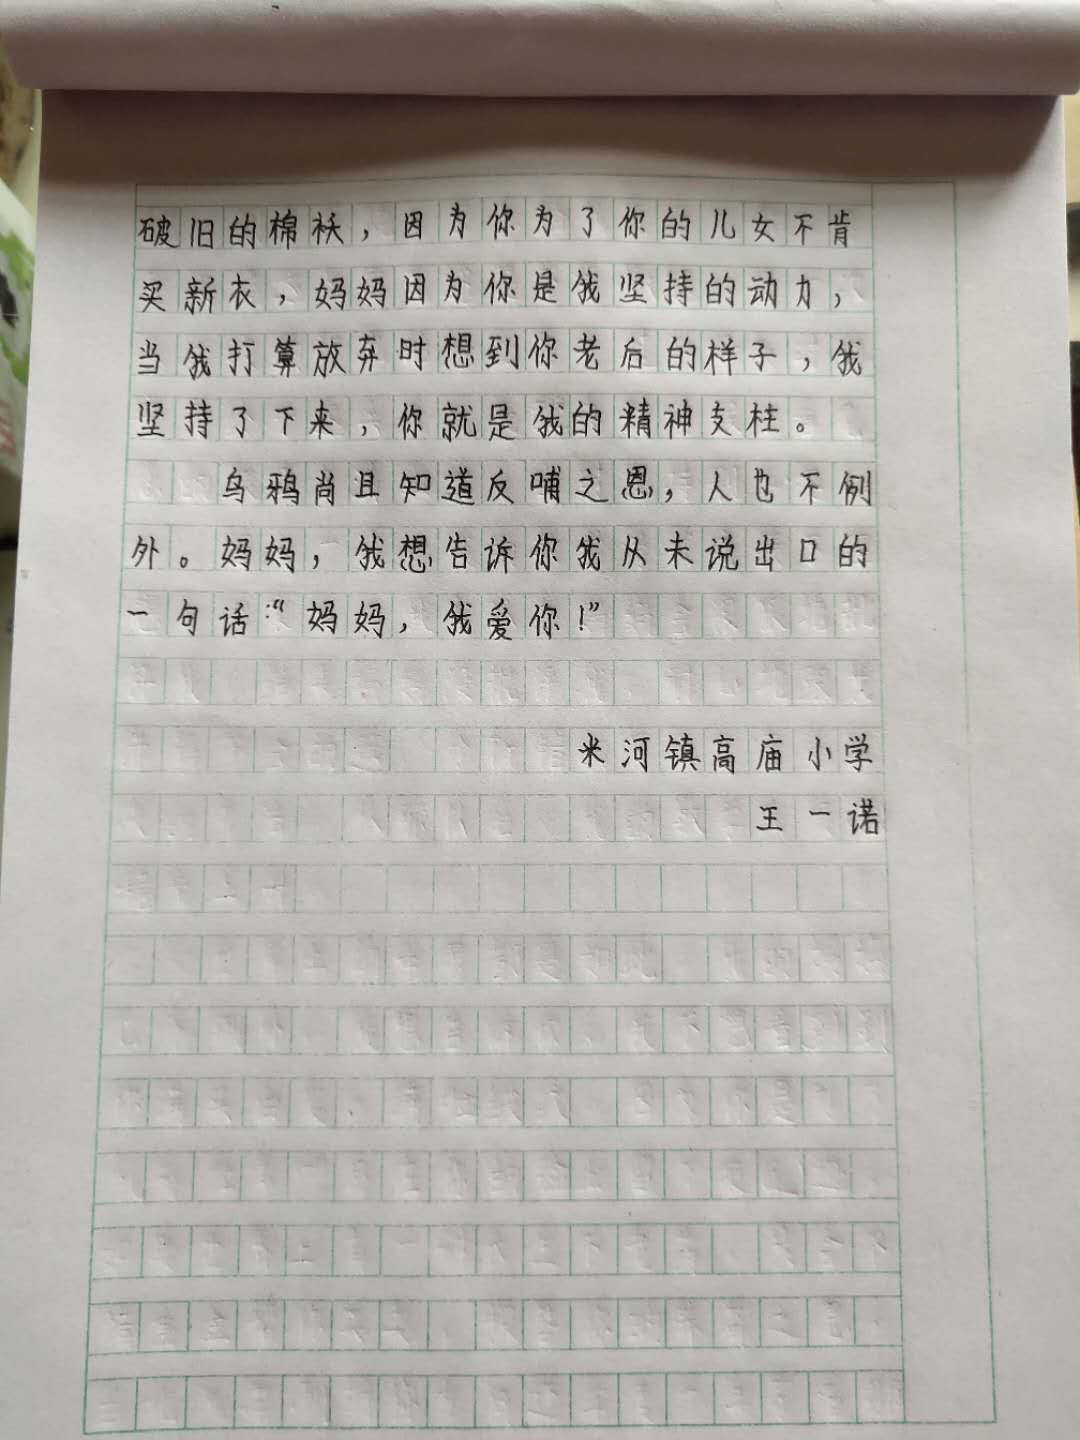 破旧的棉袄，因为你为了你的儿女不肯
买新衣，妈妈因为你是我坚持的动力，
当我打算放弃时想到你老后的样子，我
坚持了下来，你就是我的精神支柱。
乌鸦尚且知道反哺之恩，人也不例
外。妈妈，我想告诉你我从未说出口的
一句话：“妈妈，我爱你！”
米河镇高庙小学
王一诺